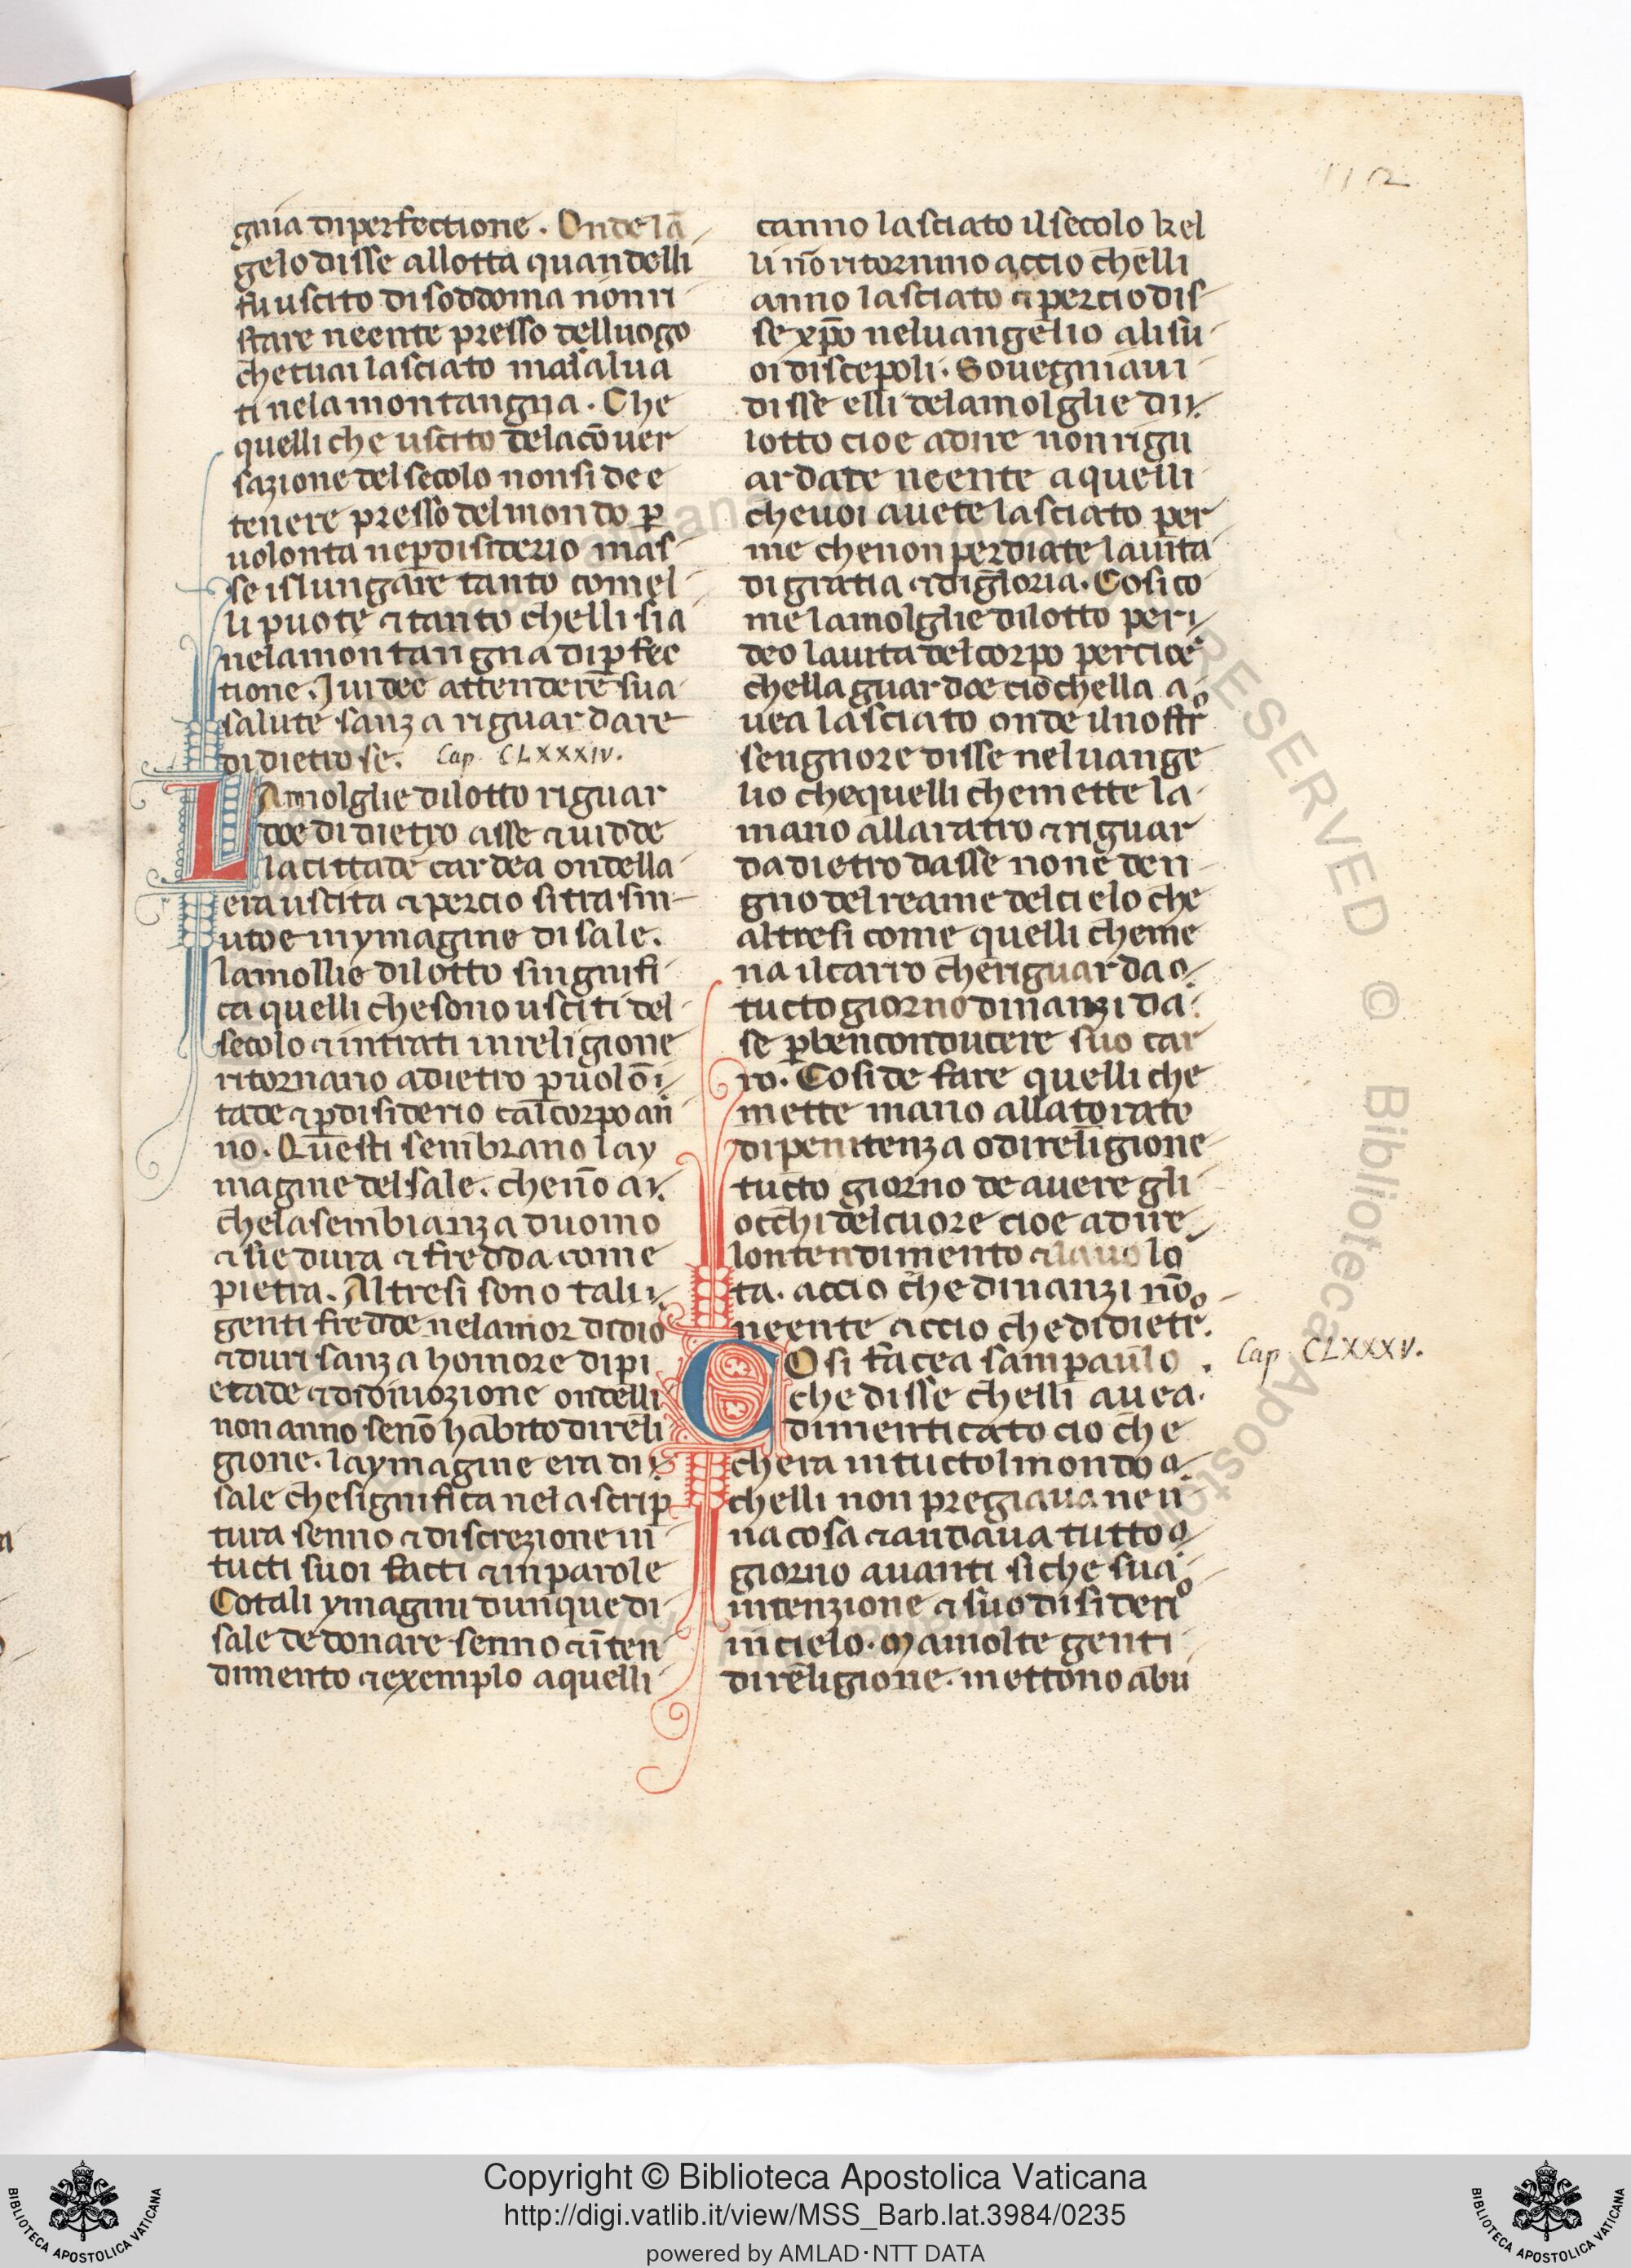 112
gnia diperfectione. Ondelā
gelo disse allotta quandelli
fu uscito di soddoma non ri
stare neente presso delluogo
che tu ai lasciato ma salua
ti nela montangna. Che
quelli che uscito dela cōuer
sazione del secolo non si dee
tenere presso del mondo p̄
uolonta ne p̄ disiderio mas
se islungare tanto com el
li puote ⁊ tanto chelli sia
nela montangna di p̄fec
tione. Iui dee attendere sua
salute sanza riguardare
di dietro se. Cap. CLXXXIV.
LA molglie di lotto riguar
doe di dietro asse ⁊ uidde
la cittade c ardea ondella
era uscita ⁊ percio si trasm
utoe in ymagine di sale.
la mollie di lotto singnifi
ca quelli che sono usciti del
secolo ⁊ intrati in religione
ritornano adietro p̄ uolō
tade ⁊ p̄ disiderio cal corpo an
no. Questi sembrano la y
magine del sale. che nō a
che la sembianza duomo
⁊ sie dura ⁊ fredda come
pietra. Altresi sono tali
genti fredde nel amor didio
⁊ duri sanza homore di pi
etade ⁊ di diuozione ondelli
non anno se nō habito di reli
gione. la ymagine era di
sale che significa nela scrip
tura senno ⁊ discrezione in
tucti suoi facti ⁊ in parole
Cotali ymagini dunque di
sale de donare senno ⁊ īten
dimento ⁊ exemplo a quelli
canno lasciato il secolo kel
li nō ritornino accio chelli
anno lasciato ⁊ percio dis
se xp̄o nel uangelio ali su
oi discepoli. Souegniaui
disse elli dela molglie di
lotto cioe a dire non rigu
ardate neente a quelli
che uoi auete lasciato per
me che non perdiate la uita
di gratia ⁊ di gloria. Cosi co
me la molglie di lotto per
deo la uita del corpo percioe
chella guardoe cio chella a
uea lasciato onde il nostro
sengnore disse nel uange
lio che quelli che mette la
mano allaratro ⁊ riguar
da dietro dasse non e den
gno del reame del cielo che
altresi come quelli che me
na il carro che riguarda
tucto giorno dinanzi da
se p̄ ben conducere suo car
ro. Cosi de fare quelli che
mette mano allatorato
di penitenza o di religione
tucto giorno de auere gli
occhi del cuore cioe a dire
lontendimento ⁊ la uolo
ta. accio che dinanzi nō
neente accio che di dietro.
COsi facea sam paulo Cap. CLXXXV.
che disse chelli auea
dimenticato cio che
chera in tucto l mondo
chelli non pregiaua neu
na cosa ⁊ andaua tutto
giorno auanti si che sua
intenzione ⁊ suo disiderio
in cielo. Ma molte genti
di religione. mettono abu
Copyright © Biblioteca Apostolica Vaticana
http://digi.vatlib.it/view/MSS_Barb.lat.3984/0235
powered by AMLAD·NTT DATA
BIBLIOTECA APOSTOLICA VATICANA
BIBLIOTECA APOSTOLICA VATICANA